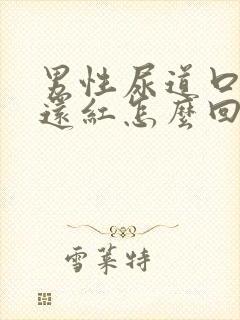 男性尿道口
還紅怎麼回
雪萊特